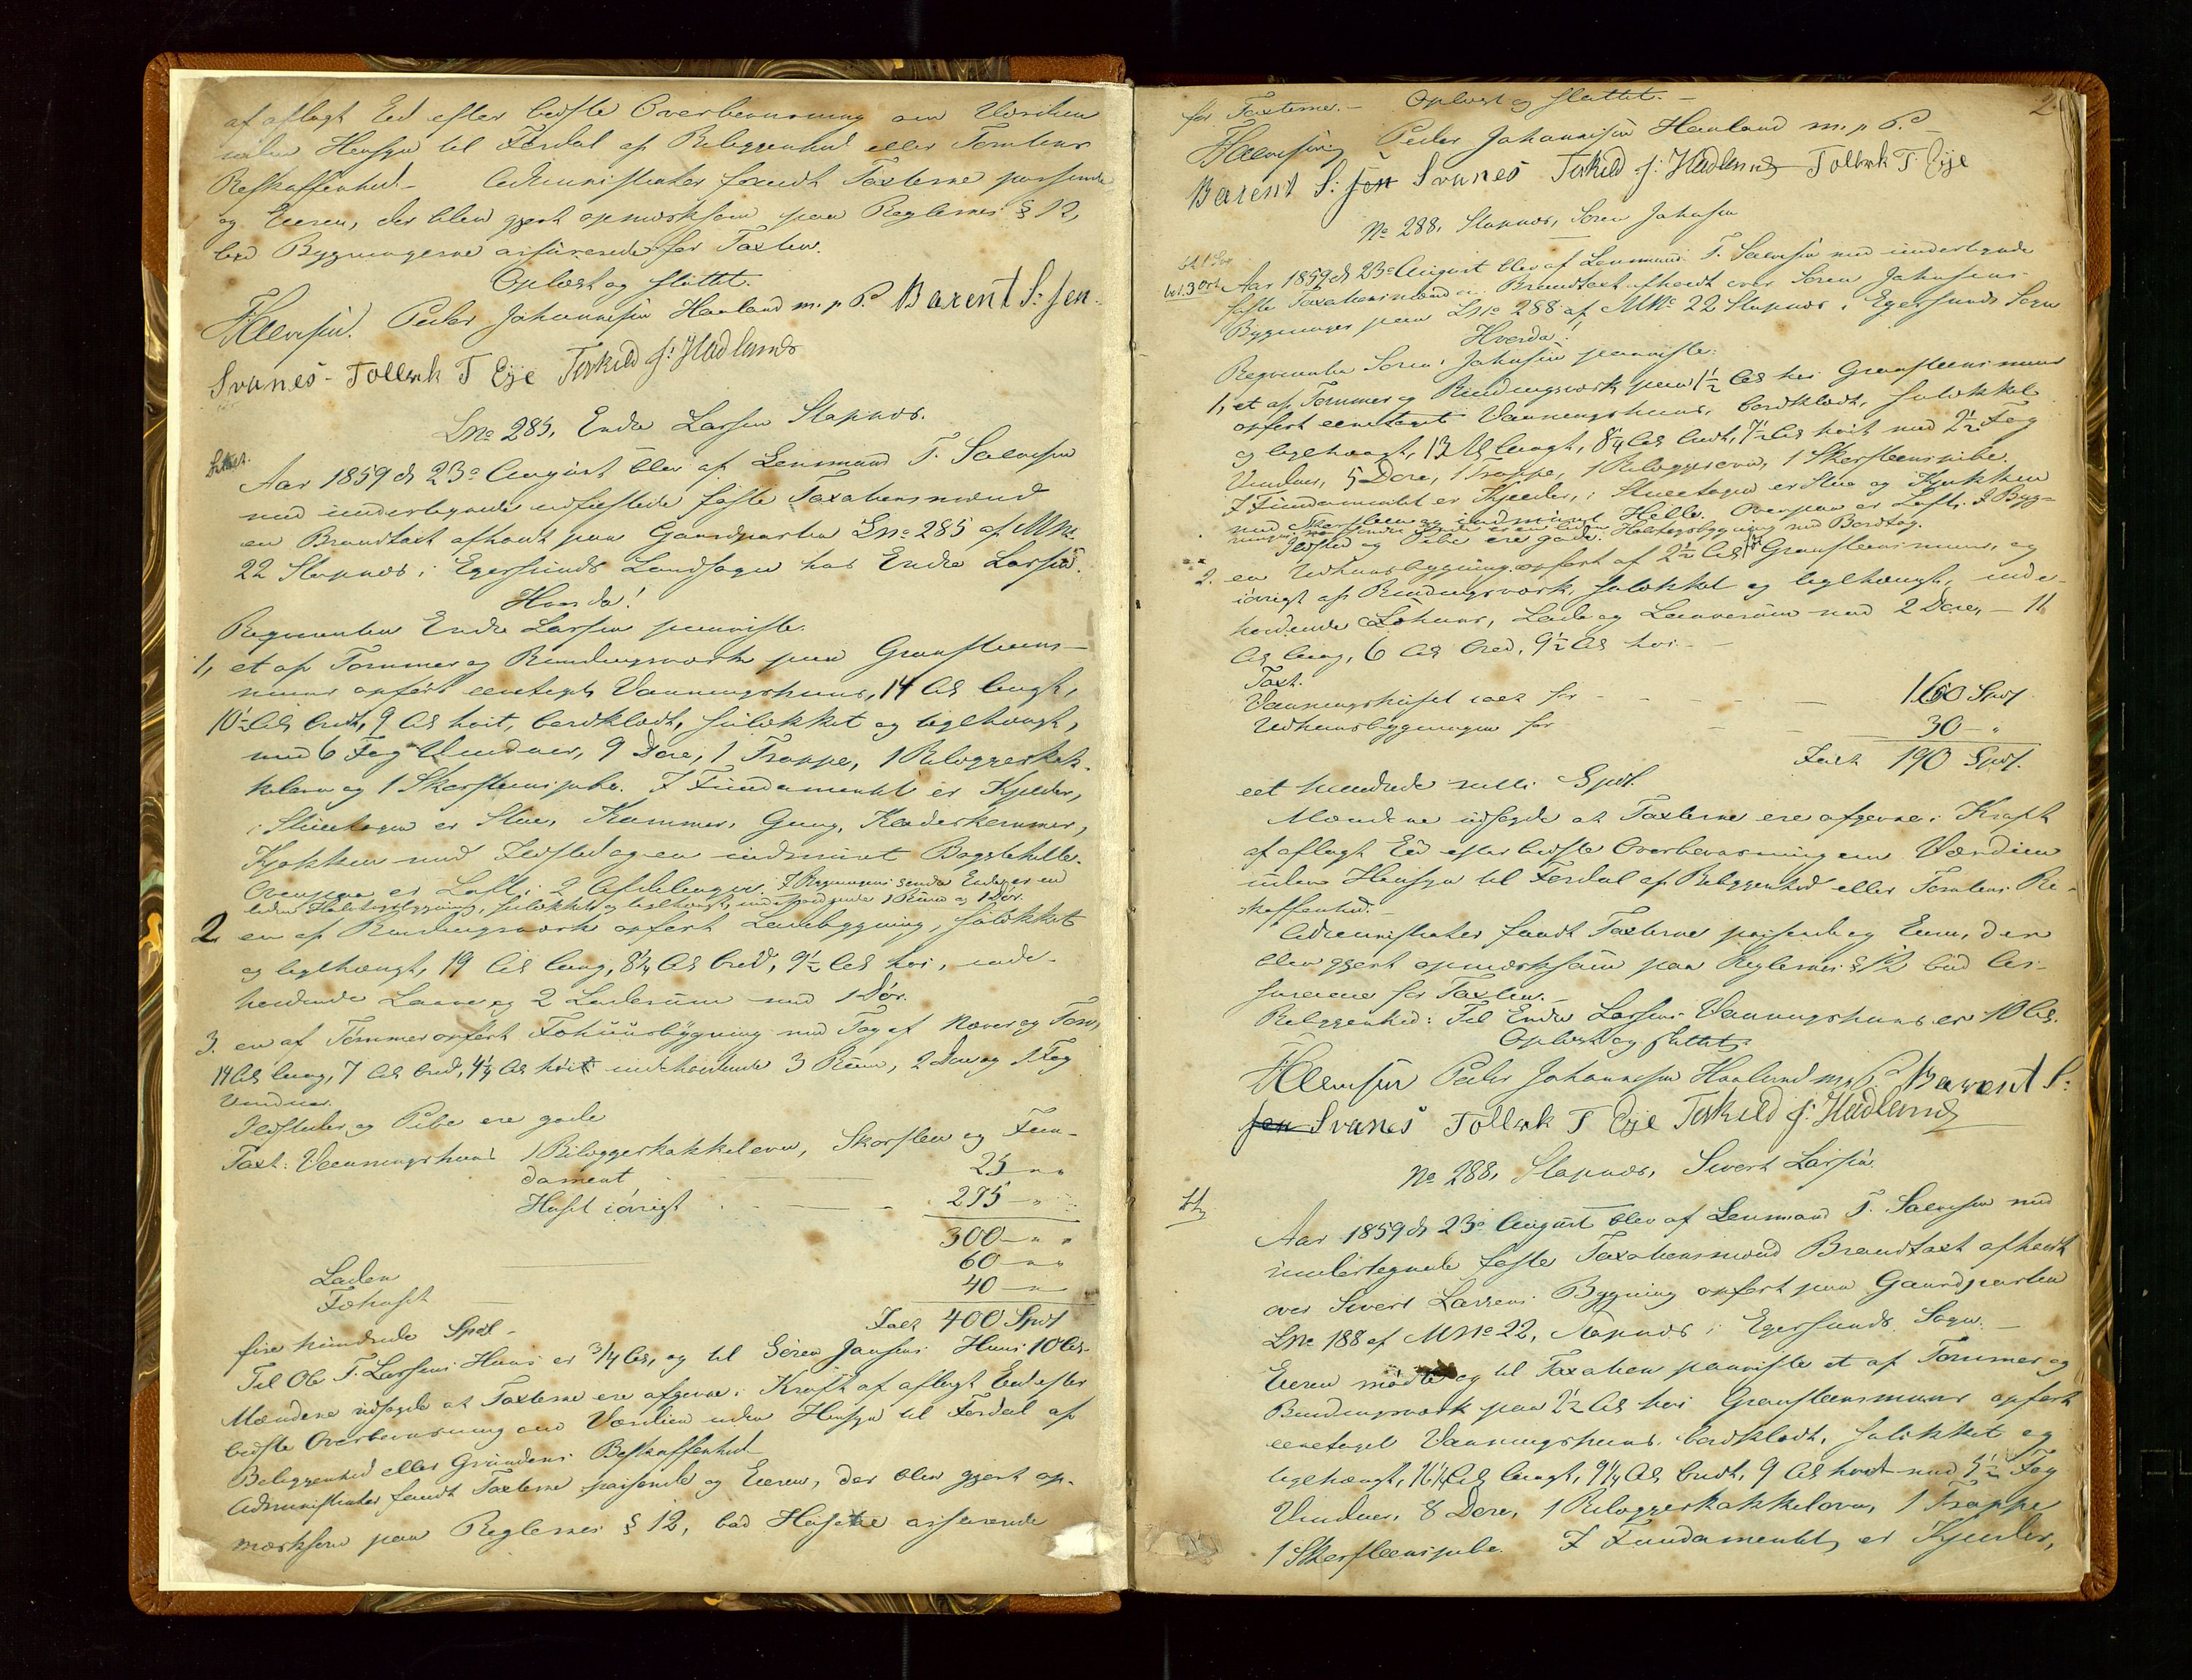 af aflagt Eed efter bedste Overbeviisning om Værdien
uden Hensyn til Fordel af Beliggenhed eller Tomtens
Beskaffenhed. – Administrator fandt Taxterne passende
og Eieren, der blev gjort opmærksom paa Reglernes § 12,
bad Bygningerne assurerede for Taxten.
Oplæst og sluttet.
T. Salvesen. Peder Johannesen Havland m. p. P. Barent S: sen
Svanes - Tollerk T Eije Terkild J: Hadland
Lno 285, Endre Larsen Slapnæs.
Aar 1859 d. 23de August blev af Lensmand T. Salvesen
med undertegnede edfæstede faste Taxationsmænd
en Brandtaxt afholdt paa Gaardparten Lno 285 af MNo
22 Slapnæs i Egersunds Landsogn hos Endre Larsen.
Hvorda!
Reqvirenten Endre Larsen paaviste.
1, et af Tømmer og Bindingsværk paa Graasteens-
muur opført eenetages Vaaningshuus, 14 Al. langt,
10½ Al. bredt, 9 Al. høit, bordklædt, sulækket og teglhængt,
med 6 Fag Vinduer, 9 Døre, 1 Trappe, 1 Bilæggerkak-
kelovn og 1 Skorsteenspibe. I Fundamentet er Kjelder,
i Stueetagen er Stue, Kammer, Gang, Kaaderkammer,
Kjøkken med Ildsted og en indmuret Bagstehelle.
Ovenpaa er Loft i 2 Afdelinger. I Bygningens søndre Ende er en
liden Halvtagsbygning, sulækket og teglhængt, indeholdende 1 Rum og 1 Dør.
2. en af Bindingsværk opført Ladebygning, sulækket
og teglhængt, 19 Al. lang, 8¼ Al. bred, 9½ Al. høi, inde-
holdende Laave og 2 Laderum med 1 Dør.
3. en af Tømmer opført Fæhuusbygning med Tag af Næver og Torv,
14 Al. lang, 7 Al. bred, 4¼ Al. høit indeholdende 3 Rum, 2 Døre og 1 Fag
Vinduer.
Ildsteder og Pibe ere gode
Taxt: Vaaningshuus 1 Bilæggerkakkelovn, Skorsten og Fun-
dament 25 – " "
Huset iøvrigt 275 – "
300 – " "
Laden 60 – " "
Fæhuset 40 – "
fire hundrede Spd. – Ialt 400 Spd
Til Ole T. Larsens Huus er ¾ Al., og til Søren Jansens Huus 10 Al.
Mændene udsagde at Taxterne ere afgivne i Kraft af aflagt Eed efter
bedste Overbeviisning om Værdien uden Hensyn til Fordel af
Beliggenhed eller Grundens Beskaffenhed
Administrator fandt Taxterne passende og Eieren, der blev gjort op-
mærksom paa Reglernes § 12, bad Husene assurerede
2.
for Taxterne. – Oplæst og sluttet. –
T. Salvesen Peder Johannesen Havland m. p. P.
Barent S: sen Svanes Terkild J: Hadland Tollerk T. Eije
No 288, Slapnæs, Søren Johnsen
bet. 3 Ort
Aar 1859 d. 23de August blev af Lensmand T. Salvesen med undertegnede
faste Taxationsmænd en Brandtaxt afholdt over Søren Johnsens
Bygninger paa LNo 288 af MNo 22 Slapnæs i Egersunds Sogn
Hvorda!
Reqvirenten Søren Johnsen paaviste:
1, et af Tømmer og Bindingsværk paa 1½ Al. høi Graasteensmuur
opført eenetages Vaaningshuus, bordklædt, sulækket
og teglhængt, 13 Al. langt, 8¼ Al. bredt, 7½ Al. høit med 2½ Fag
Vinduer, 5 Døre, 1 Trappe, 1 Bilæggerovn, 1 Skorsteenspibe.
I Fundamentet er Kjelder, i Stueetagen er Stue og Kjøkken
med Skorsteen og indmuret Helle. Ovenpaa er Loft. I Byg-
ningens søndre Ende er en liden Halvtagsbygning med Bordtag.
Ildsted og Pibe ere gode.
2. en Udhuusbygning opført af 2½ Al. høi Graasteensmuur, og
iøvrigt af Bindingsværk, sulækket og teglhængt, inde-
holdende Fæhuus, Lade og Laaverum med 2 Døre, – 11
Al. lang, 6 Al. bred, 9½ Al. høi. –
Taxt.
Vaaningshuset ialt for – – – 160 Spd.
Udhuusbygningen for – – 30 – "
Ialt 190 Spd.
eet hundrede nitti Spd.
Mændene udsagde at Taxterne ere afgivne i Kraft
af aflagt Eed efter bedste Overbeviisning om Værdien
uden Hensyn til Fordel af Beliggenhed eller Tomtens Be-
skaffenhed. –
Administrator fandt Taxterne passende og Eieren, der
blev gjort opmærksom paa Reglernes § 12 bad As-
surance for Taxten. –
Beliggenhed: Til Endre Larsens Vaaningshuus er 10 Al.
Oplæst og sluttet.
T. Salvesen Peder Johannesen Havland m. p. P. Barent S:
sen Svanes Tollerk T Eije Terkild J: Hadland
No 288, Slapnæs, Sivert Larsen.
Aar 1859 d. 23de August blev af Lensmand T. Salvesen med
undertegnede faste Taxationsmænd Brandtaxt afholdt
over Sivert Larsens Bygning opført paa Gaardparten
LNo 188 af MNo 22, Slapnæs i Egersunds Sogn. –
Eieren mødte og til Taxation paaviste et af Tømmer og
Bindingsværk paa 2½ Al. høi Graasteensmuur opført
eenetages Vaaningshuus, bordklædt, sulækket og
teglhængt, 16¼ Al. langt, 9¼ Al. bredt, 9 Al. høit med 5½ Fag
Vinduer, 8 Døre, 1 Bilæggerkakkelovn, 1 Trappe
1 Skorsteenspibe. I Fundamentet er Kjelder,